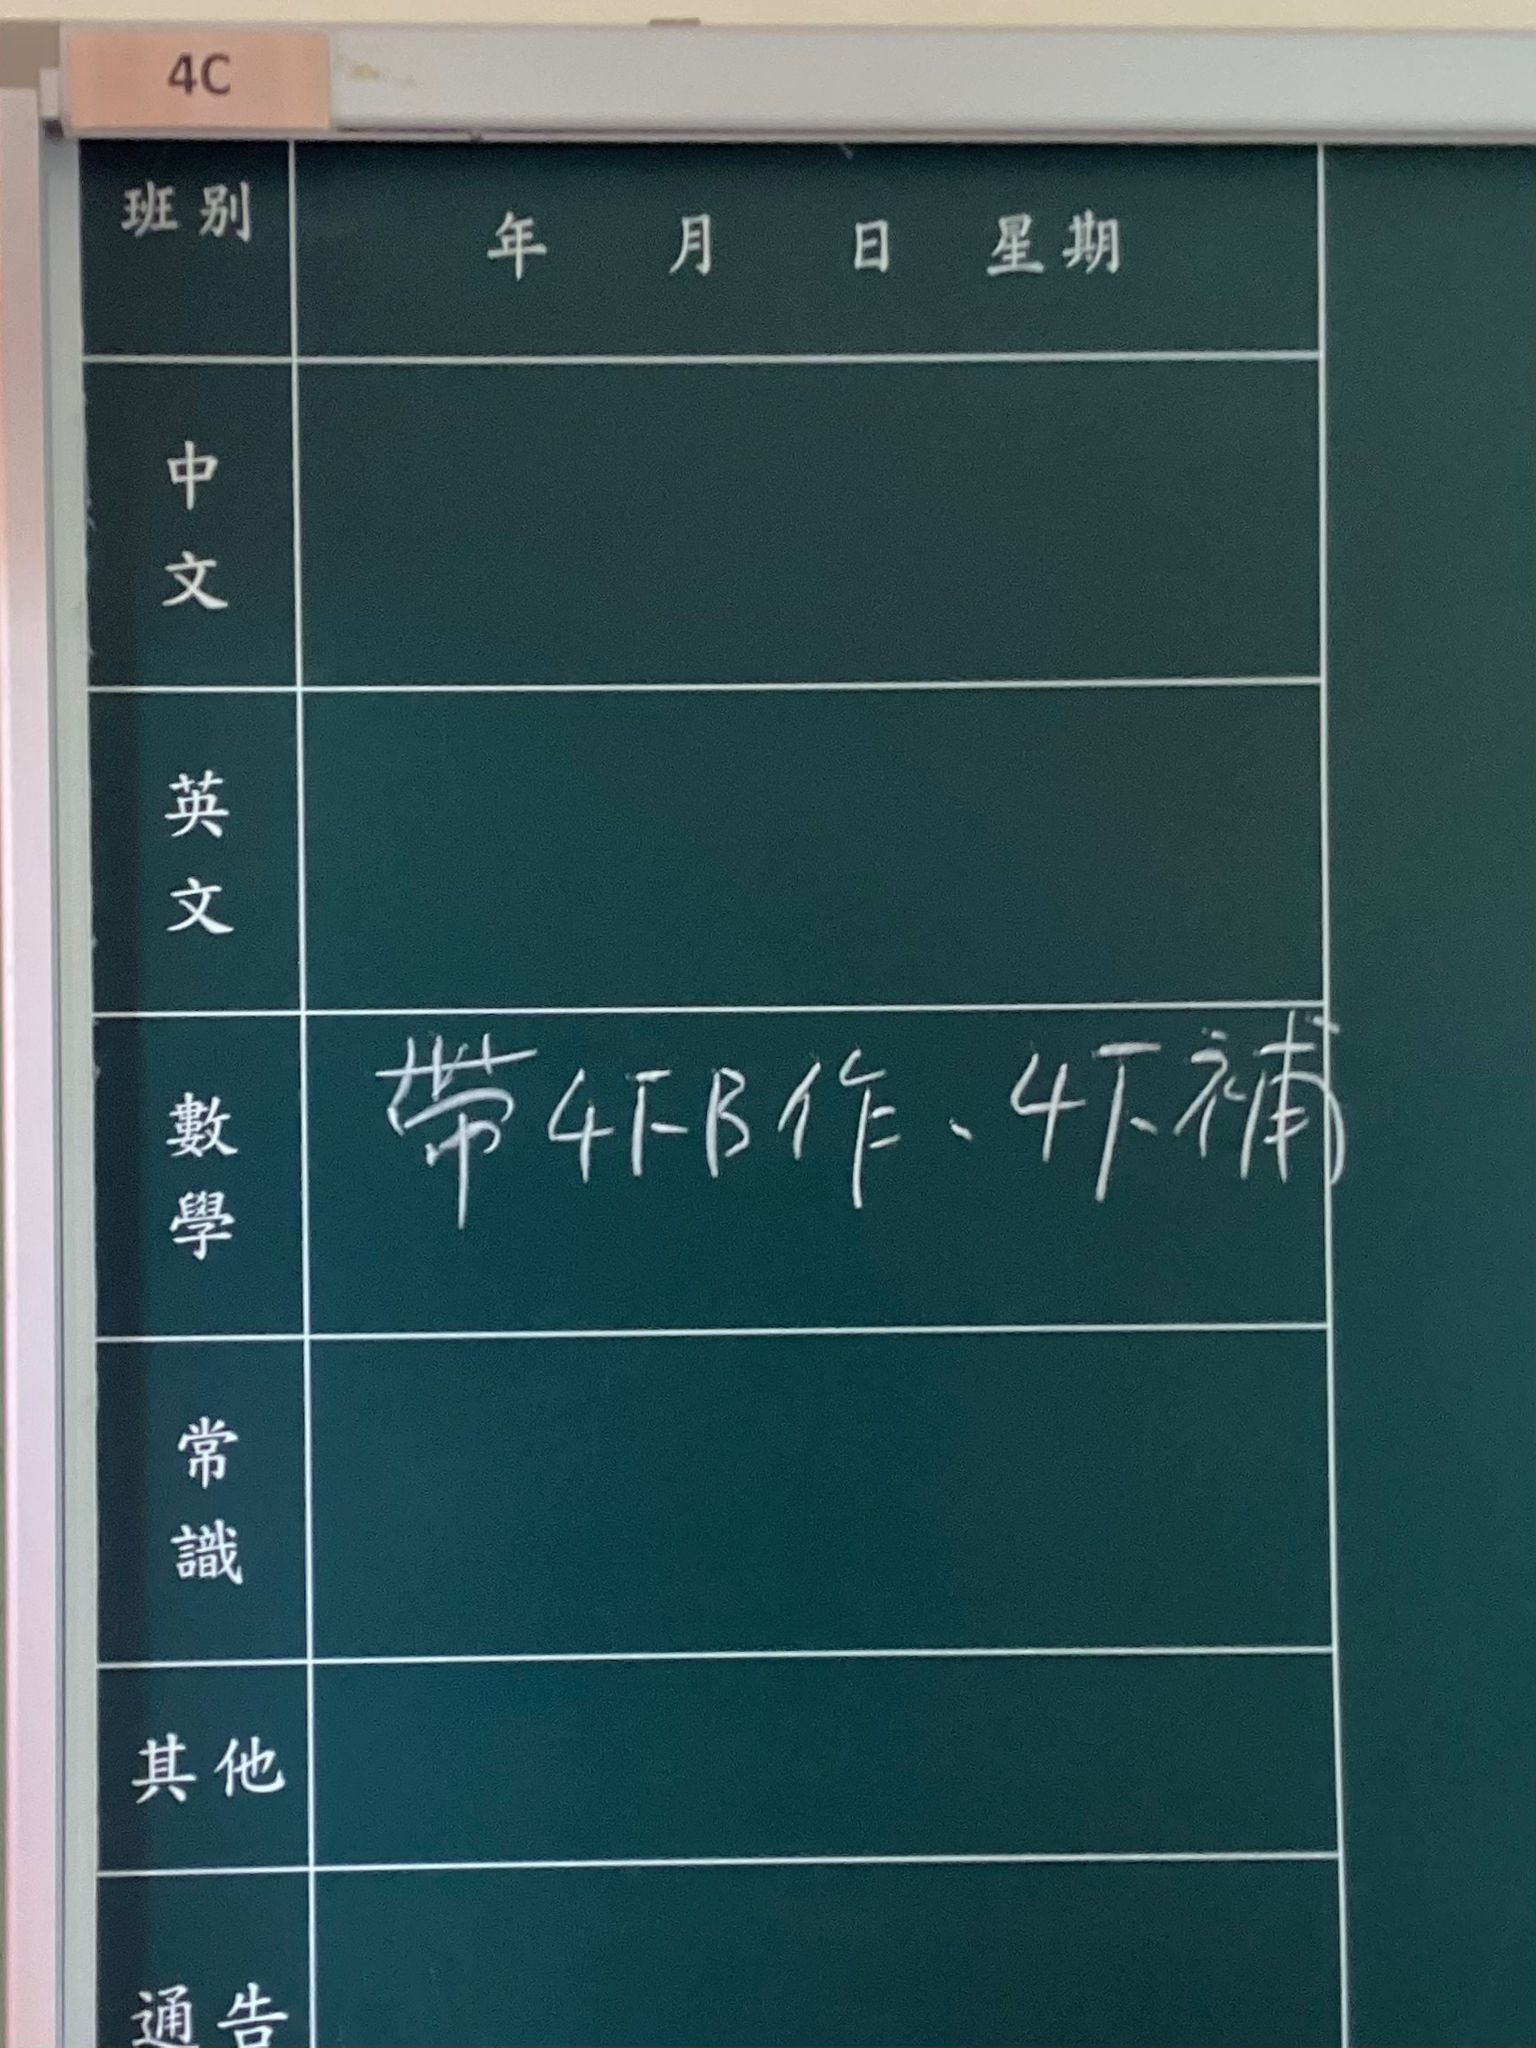 4C
班別
年 月 日 星期
中文
英文
數學
帶4下B作、4下補
常識
其他
通告